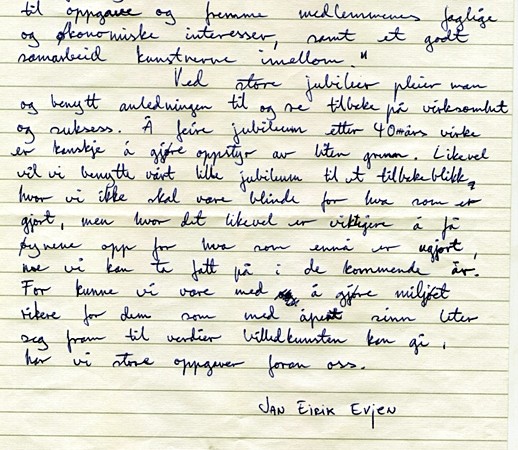 til oppgave og fremme medlemmenes faglige
og økonomiske interesser, samt et godt
samarbeid kunstnerne imellom."
Ved store jubiléer pleier man
og benytt anledningen til og se tilbake på virksomhet
og suksess. Å feire jubileum etter 40 års virke
er kanskje å gjøre oppstyr av liten grunn. Likevel
vil vi benytte vårt lille jubileum til et tilbakeblikk,
hvor vi ikke skal være blinde for hva som er
gjort, men hvor det likevel er viktigere å få
øynene opp for hva som ennå er ugjort,
noe vi kan ta fatt på i de kommende år.
For kunne vi være med å gjøre miljøet
rikere for dem som med åpent sinn leter
seg fram til verdier billedkunsten kan gi,
har vi store oppgaver foran oss.
JAN EIRIK EVJEN